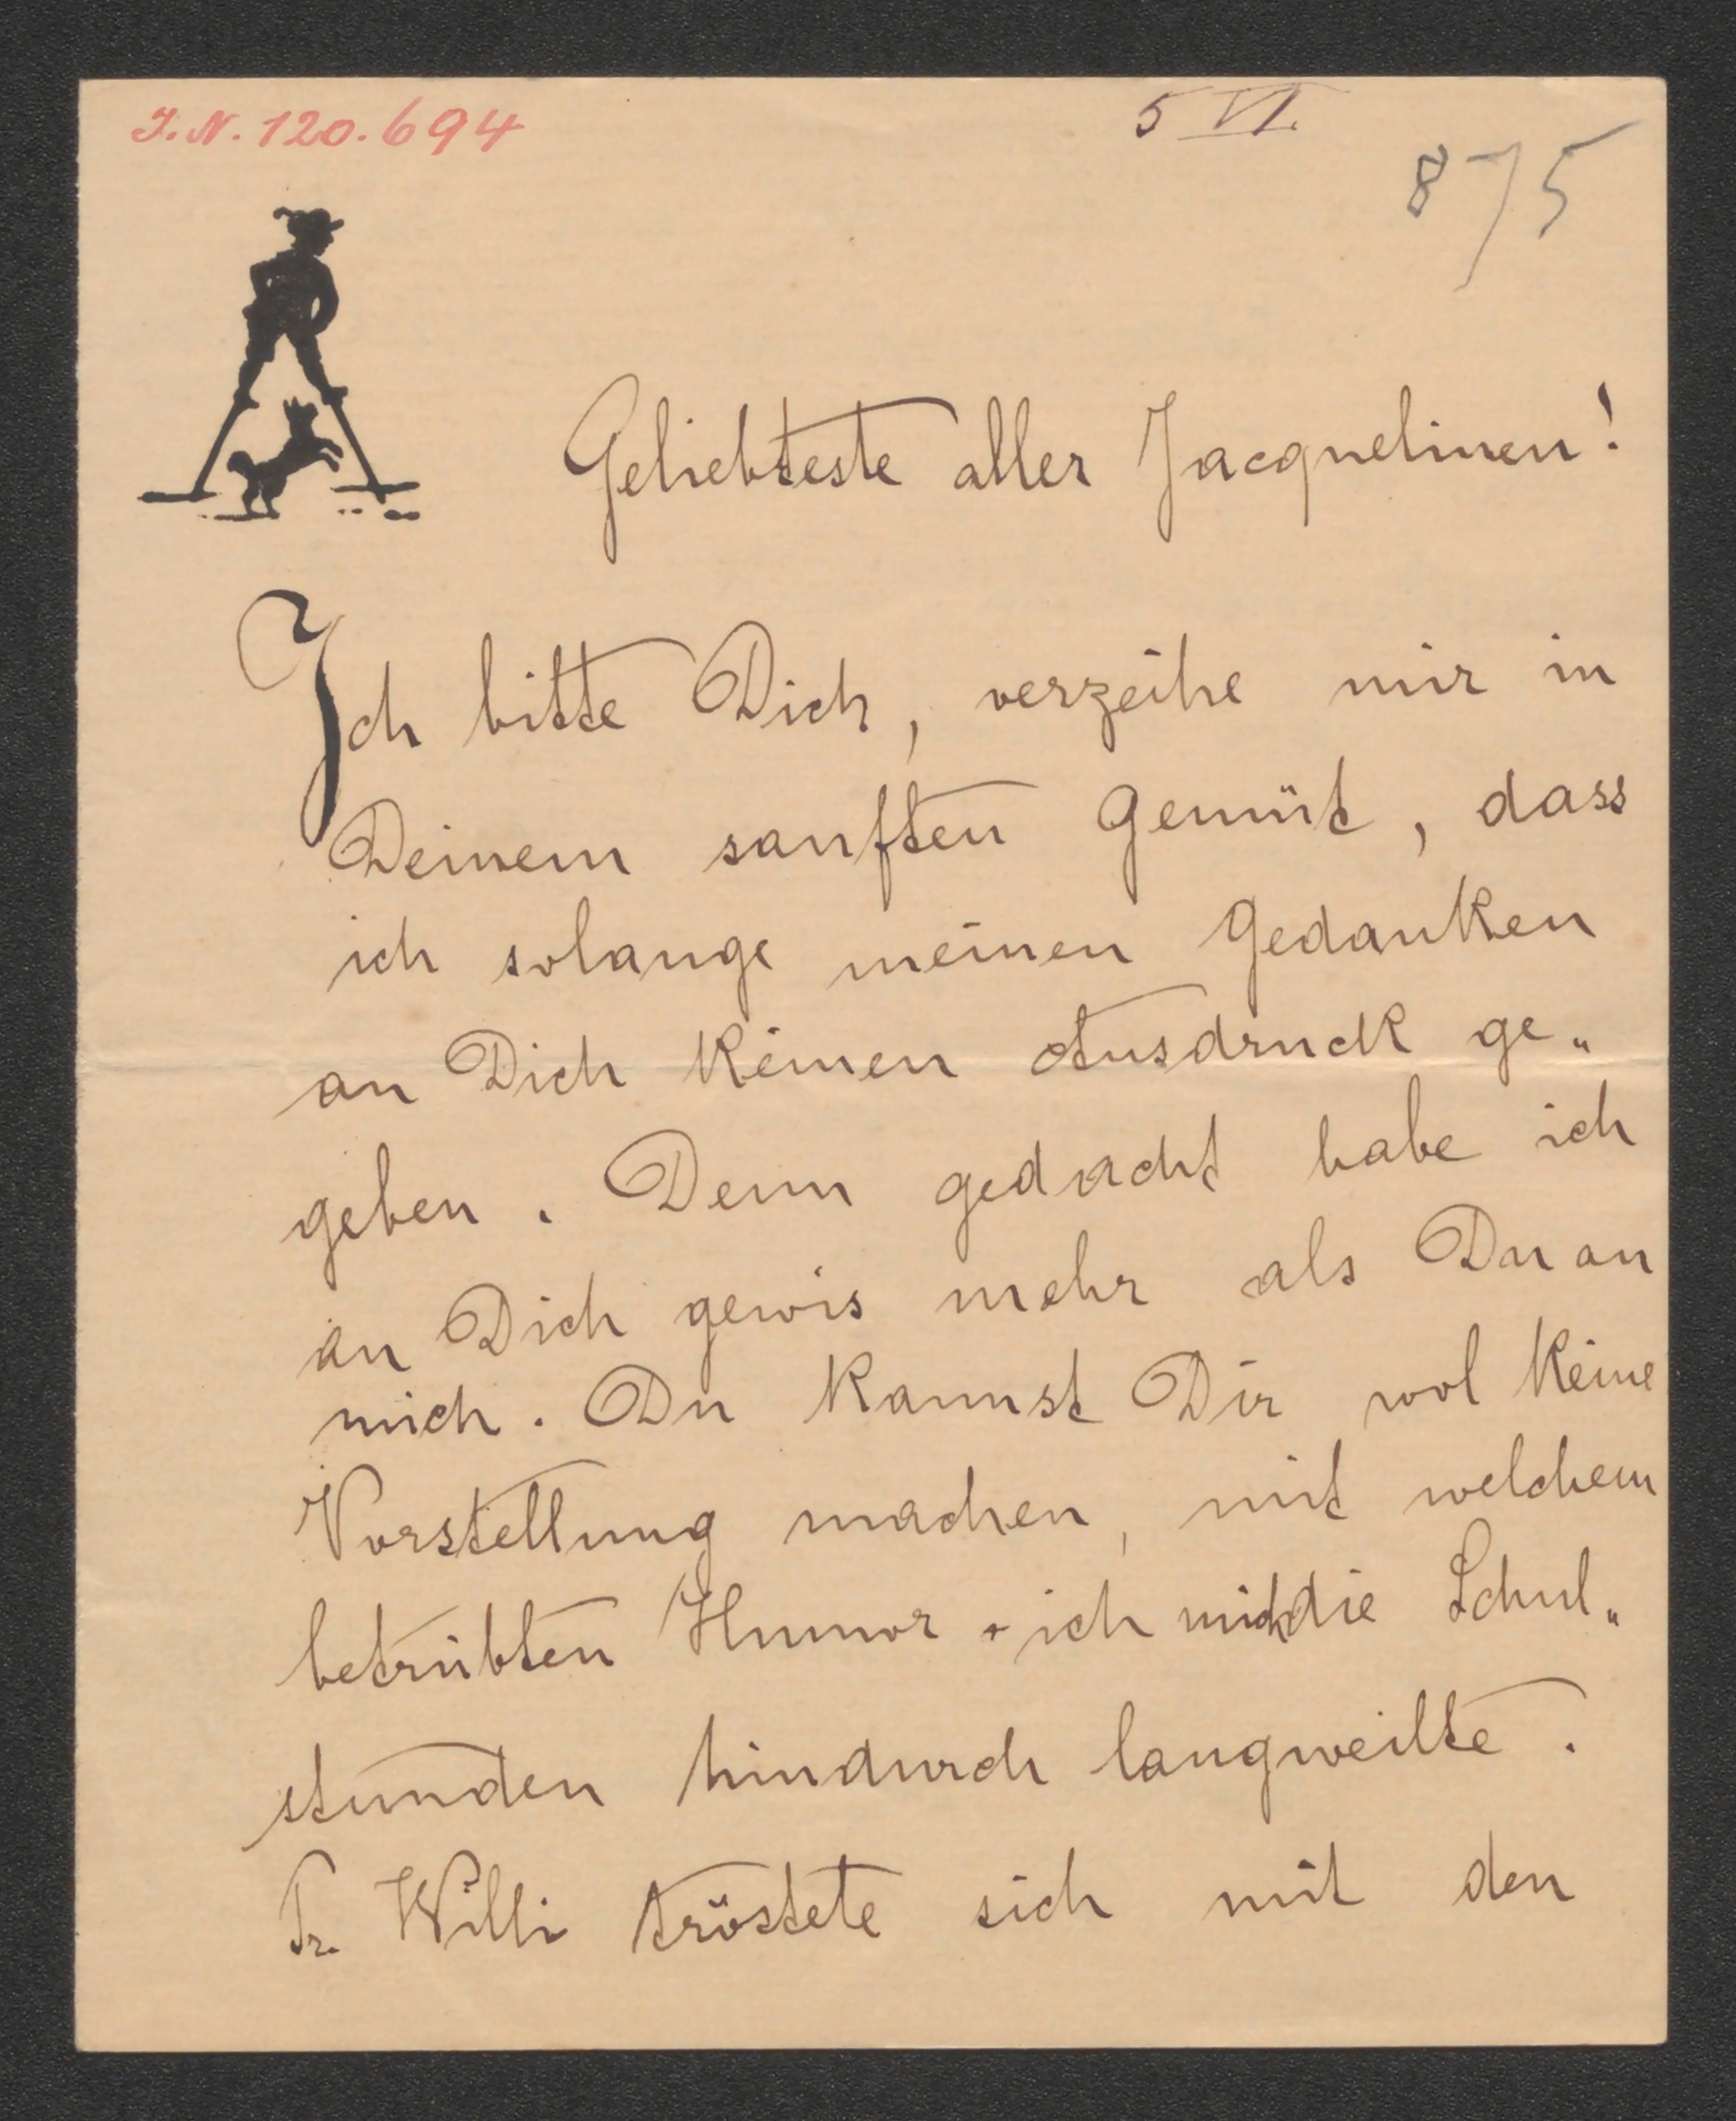 J.N. 120.694
5 VI.
875
Geliebteste aller Jacquelinen!
Ich bitte Dich, verzeihe mir in
Deinem sanften Gemüt, dass
ich solange meinen Gedanken
an Dich keinen Ausdruck ge„
geben. Denn gedacht habe ich
an Dich gewis mehr als Du an
mich. Du kannst Dir wol keine
Vorstellung machen, mit welchem
betrübten Humor ich mich die Schul„
stunden hindurch langweilte.
Willi tröstete sich mit den